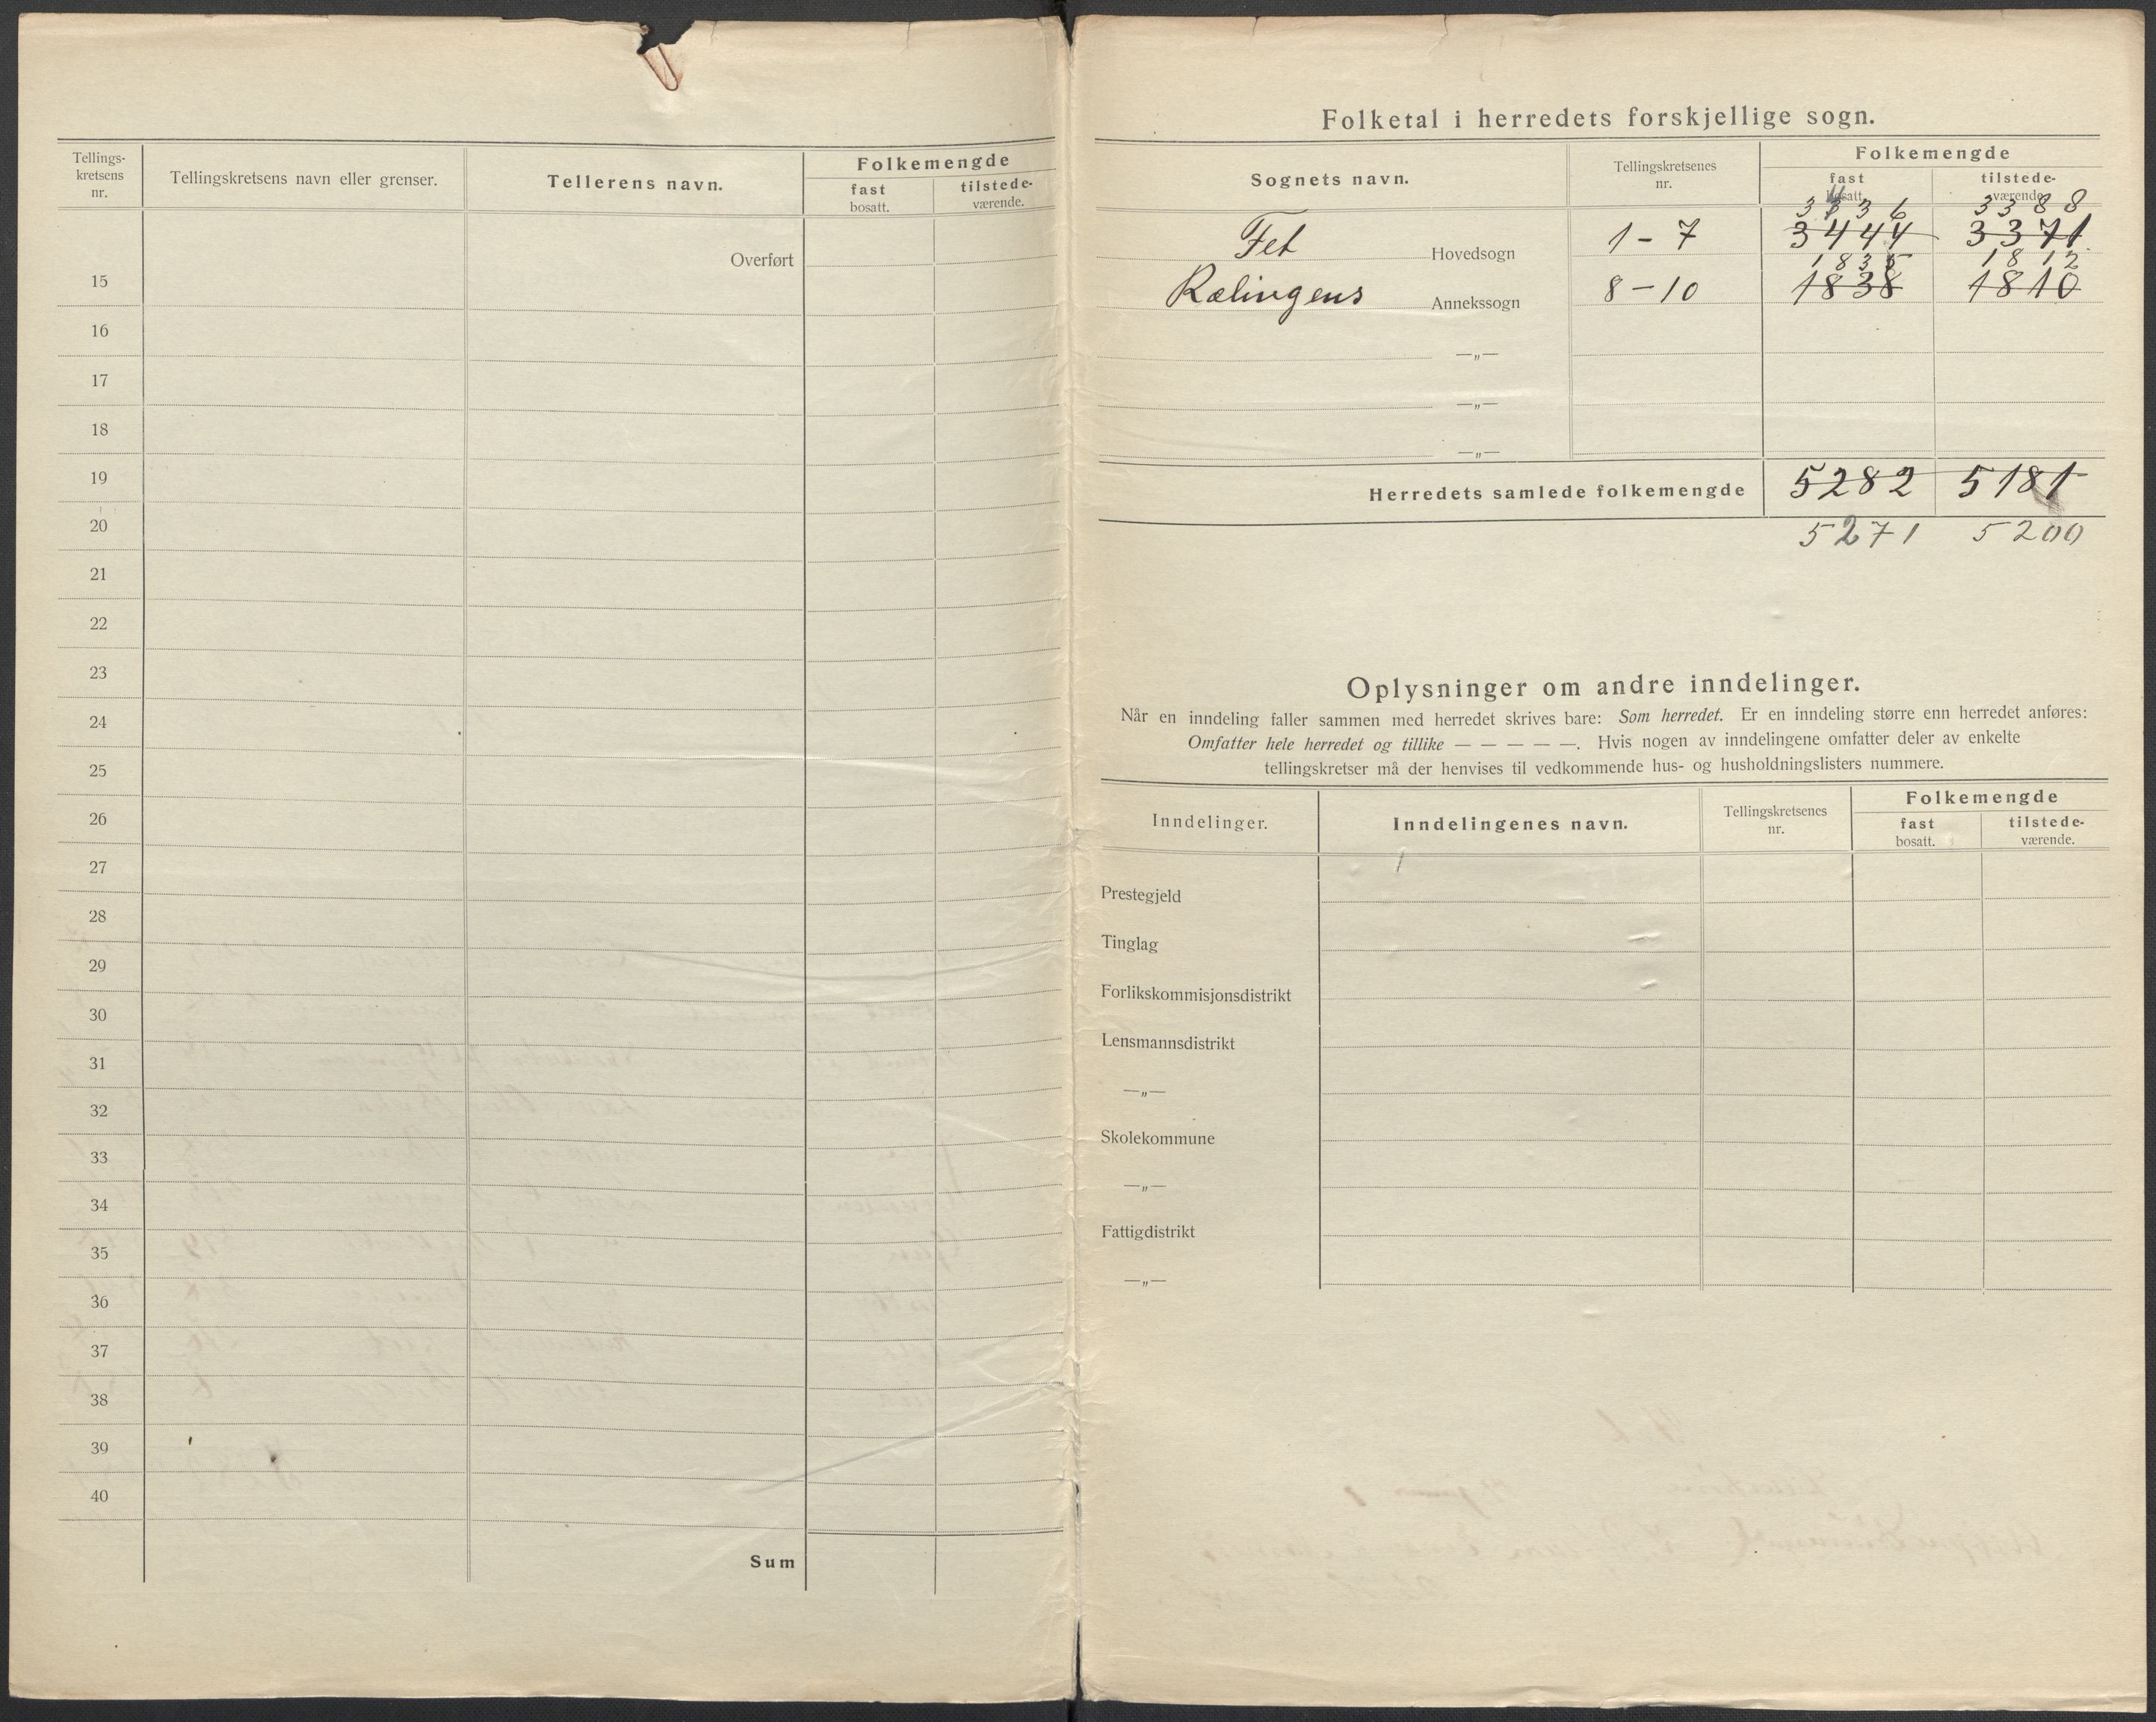 Tellings-
kretsens
nr.
Tellingskretsens navn eller grenser.
Tellerens navn.
Folkemengde
fast
bosatt.
tilstede-
værende.
Overført
15
16
17
18
19
20
21
22
23
24
25
26
27
28
29
30
31
32
33
34
35
36
37
38
39
40
Sum
Folketal i herredets forskjellige sogn.
Sognets navn.
Tellingskretsenes
nr.
Folkemengde
fast
bosatt.
tilstede-
værende.
3436 3388
Fet Hovedsogn 1-7 3444 3371
1835 1812
Rælingens Annekssogn 8-10 1838 1810
—„—
—„—
—„—
Herredets samlede folkemengde 5282 5181
5271 5200
Oplysninger om andre inndelinger.
Når en inndeling faller sammen med herredet skrives bare: Som herredet. Er en inndeling større enn herredet anføres:
Omfatter hele herredet og tillike — — — — —. Hvis nogen av inndelingene omfatter deler av enkelte
tellingskretser må der henvises til vedkommende hus- og husholdningslisters nummere.
Inndelinger.
Inndelingenes navn.
Tellingskretsenes
nr.
Folkemengde
fast
bosatt.
tilstede-
værende.
Prestegjeld
Tinglag
Forlikskommisjonsdistrikt
Lensmannsdistrikt
—„—
Skolekommune
—„—
Fattigdistrikt
—„—